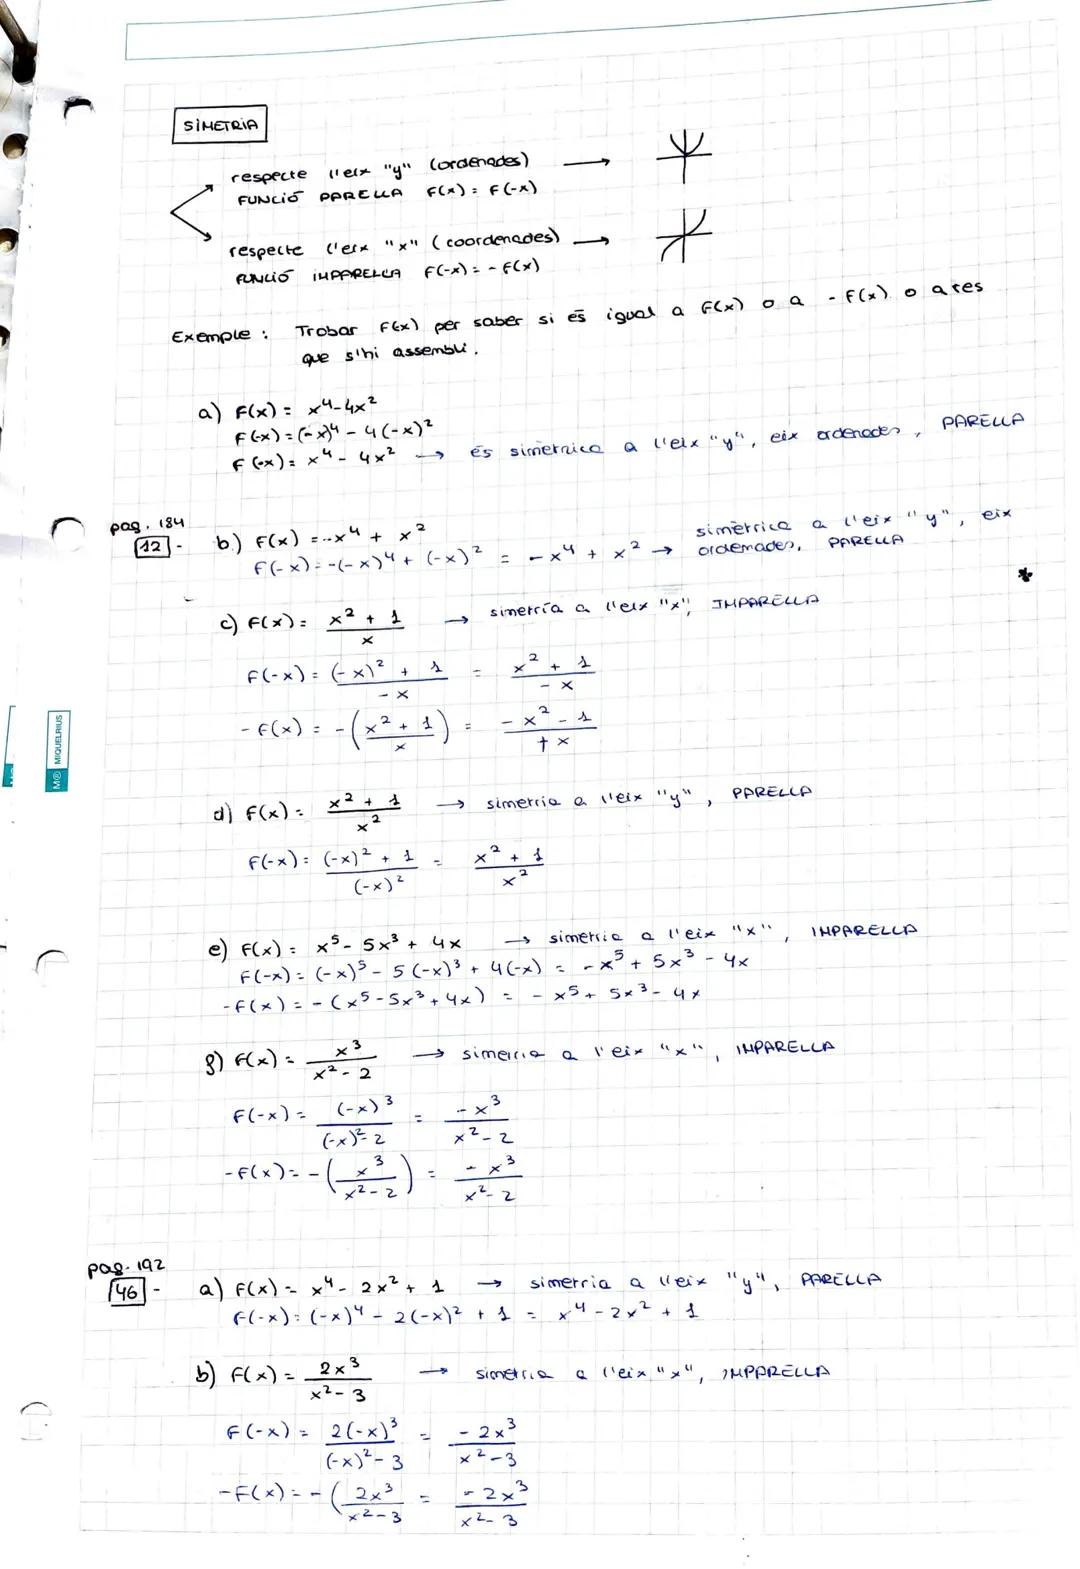 SIMETRIA
respecte l'eix "y" (ordenades) →
FUNCIÓ PARELLA F(x) = F(-x)
respecte l'eix "x" (coordenades) →
FUNCIÓ IMPARELLA F(-x) = - F(x)
Exemple : Trobar F(-x) per saber si és igual a F(x) o a - F(x) o a res
que s'hi assembli.
a) F(x) = x⁴-4x²
F(-x) = (-x)⁴ - 4(-x)²
F(-x) = x⁴ - 4x² → és simètrica a l'eix "y", eix ordenades, PARELLA
pag. 184
12 - b) F(x) = -x⁴ + x²
F(-x) = -(-x)⁴ + (-x)² = -x⁴ + x² → simètrica a l'eix "y", eix
ordenades, PARELLA
*
c) F(x) = (x² + 1)/x → simetría a l'eix "x", IMPARELLA
F(-x) = ((-x)² + 1)/(-x) = (x² + 1)/(-x)
-F(x) = -((x² + 1)/x) = (-x² - 1)/(+x)
d) F(x) = (x² + 1)/x² → simetria a l'eix "y", PARELLA
F(-x) = ((-x)² + 1)/(-x)² = (x² + 1)/x²
e) F(x) = x⁵ - 5x³ + 4x → simetria a l'eix "x", IMPARELLA
F(-x) = (-x)⁵ - 5(-x)³ + 4(-x) = -x⁵ + 5x³ - 4x
-F(x) = -(x⁵-5x³+4x) = -x⁵ + 5x³ - 4x
f) F(x) = x³/(x² - 2) → simetria a l'eix "x", IMPARELLA
F(-x) = (-x)³/((-x)² - 2) = -x³/(x² - 2)
-F(x) = -(x³/(x² - 2)) = -x³/(x² - 2)
pag. 192
46 - a) F(x) = x⁴ - 2x² + 1 → simetria a l'eix "y", PARELLA
F(-x) = (-x)⁴ - 2(-x)² + 1 = x⁴ - 2x² + 1
b) F(x) = 2x³/(x² - 3) → simetria a l'eix "x", IMPARELLA
F(-x) = 2(-x)³/((-x)² - 3) = -2x³/(x² - 3)
-F(x) = -(2x³/(x² - 3) = -2x³/(x² - 3)
MIQUELRIUS